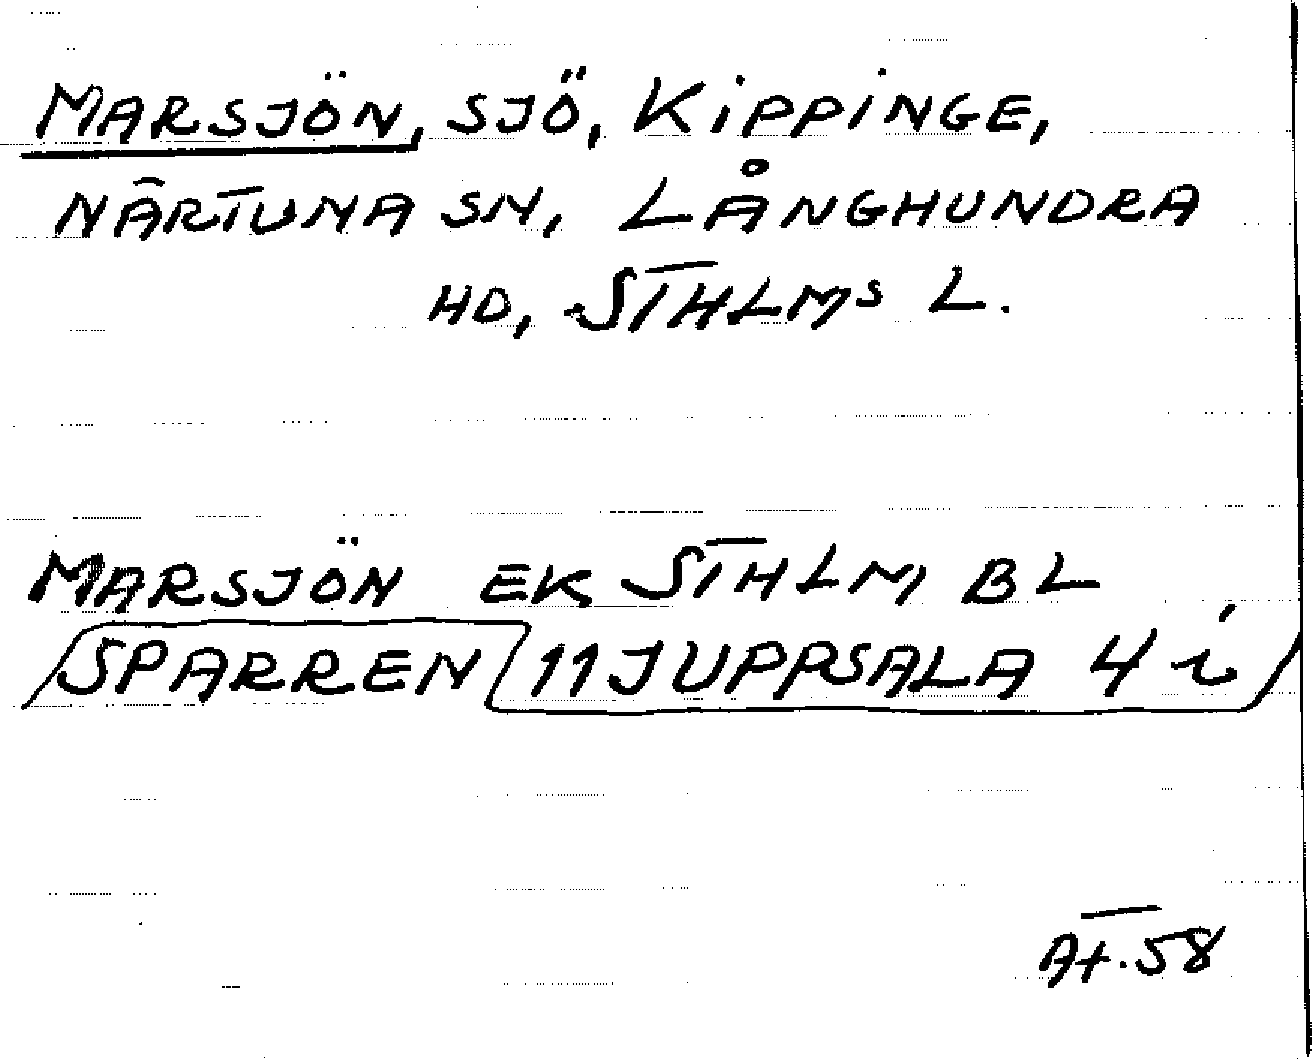 MARSJÖN, SJÖ, KIPPINGE,
NÄRTUNA SN, LÅNGHUNDRA
HD, STHLMS L.
MARSJÖN EK STHLM BL
SPARREN 11J UPPSALA 4 i